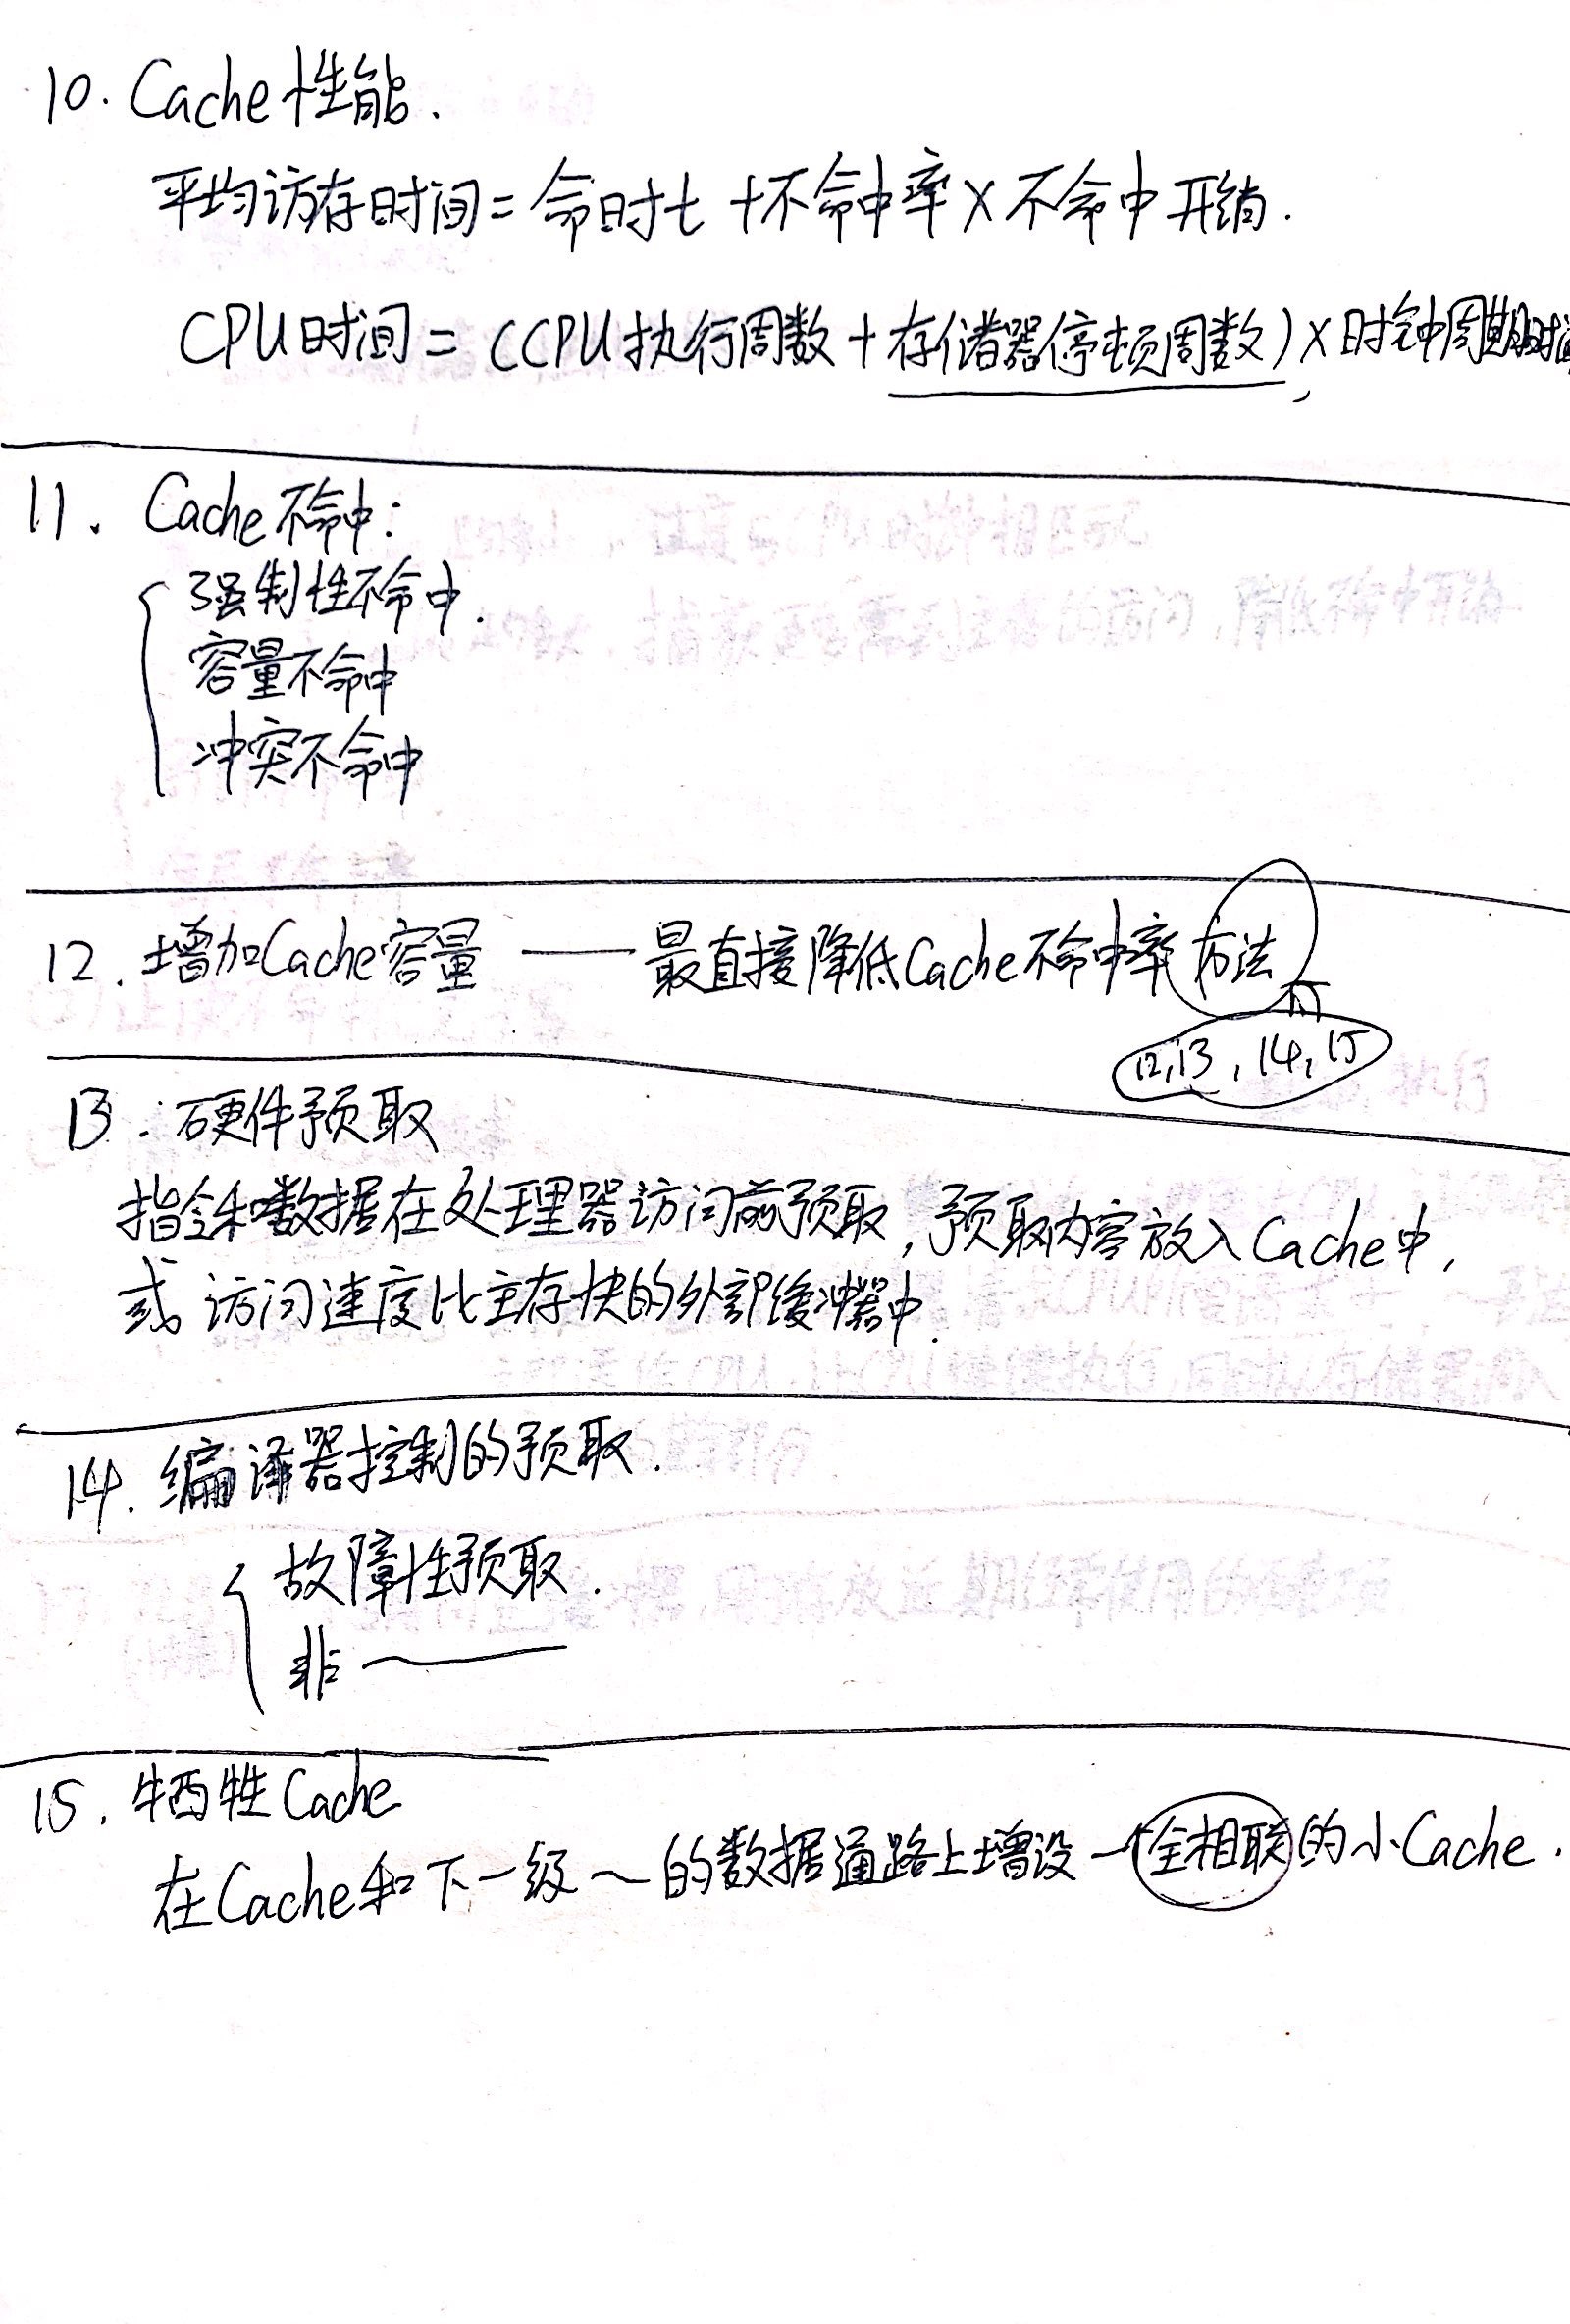 10. Cache性能.
平均访存时间=命时t+不命中率×不命中开销.
CPU时间=(CPU执行周数+存储器停顿周数)×时钟周期时间
11. Cache不命中:
强制性不命中.
容量不命中
冲突不命中
12. 增加Cache容量——最直接降低Cache不命中率方法
12,13,14,15
13. 硬件预取
指令和数据在处理器访问前预取,预取内容放入Cache中,
或访问速度比主存快的外部缓冲器中.
14. 编译器控制的预取.
故障性预取.
非——
15. 牺牲Cache
在Cache和下一级~的数据通路上增设一个全相联的小Cache.